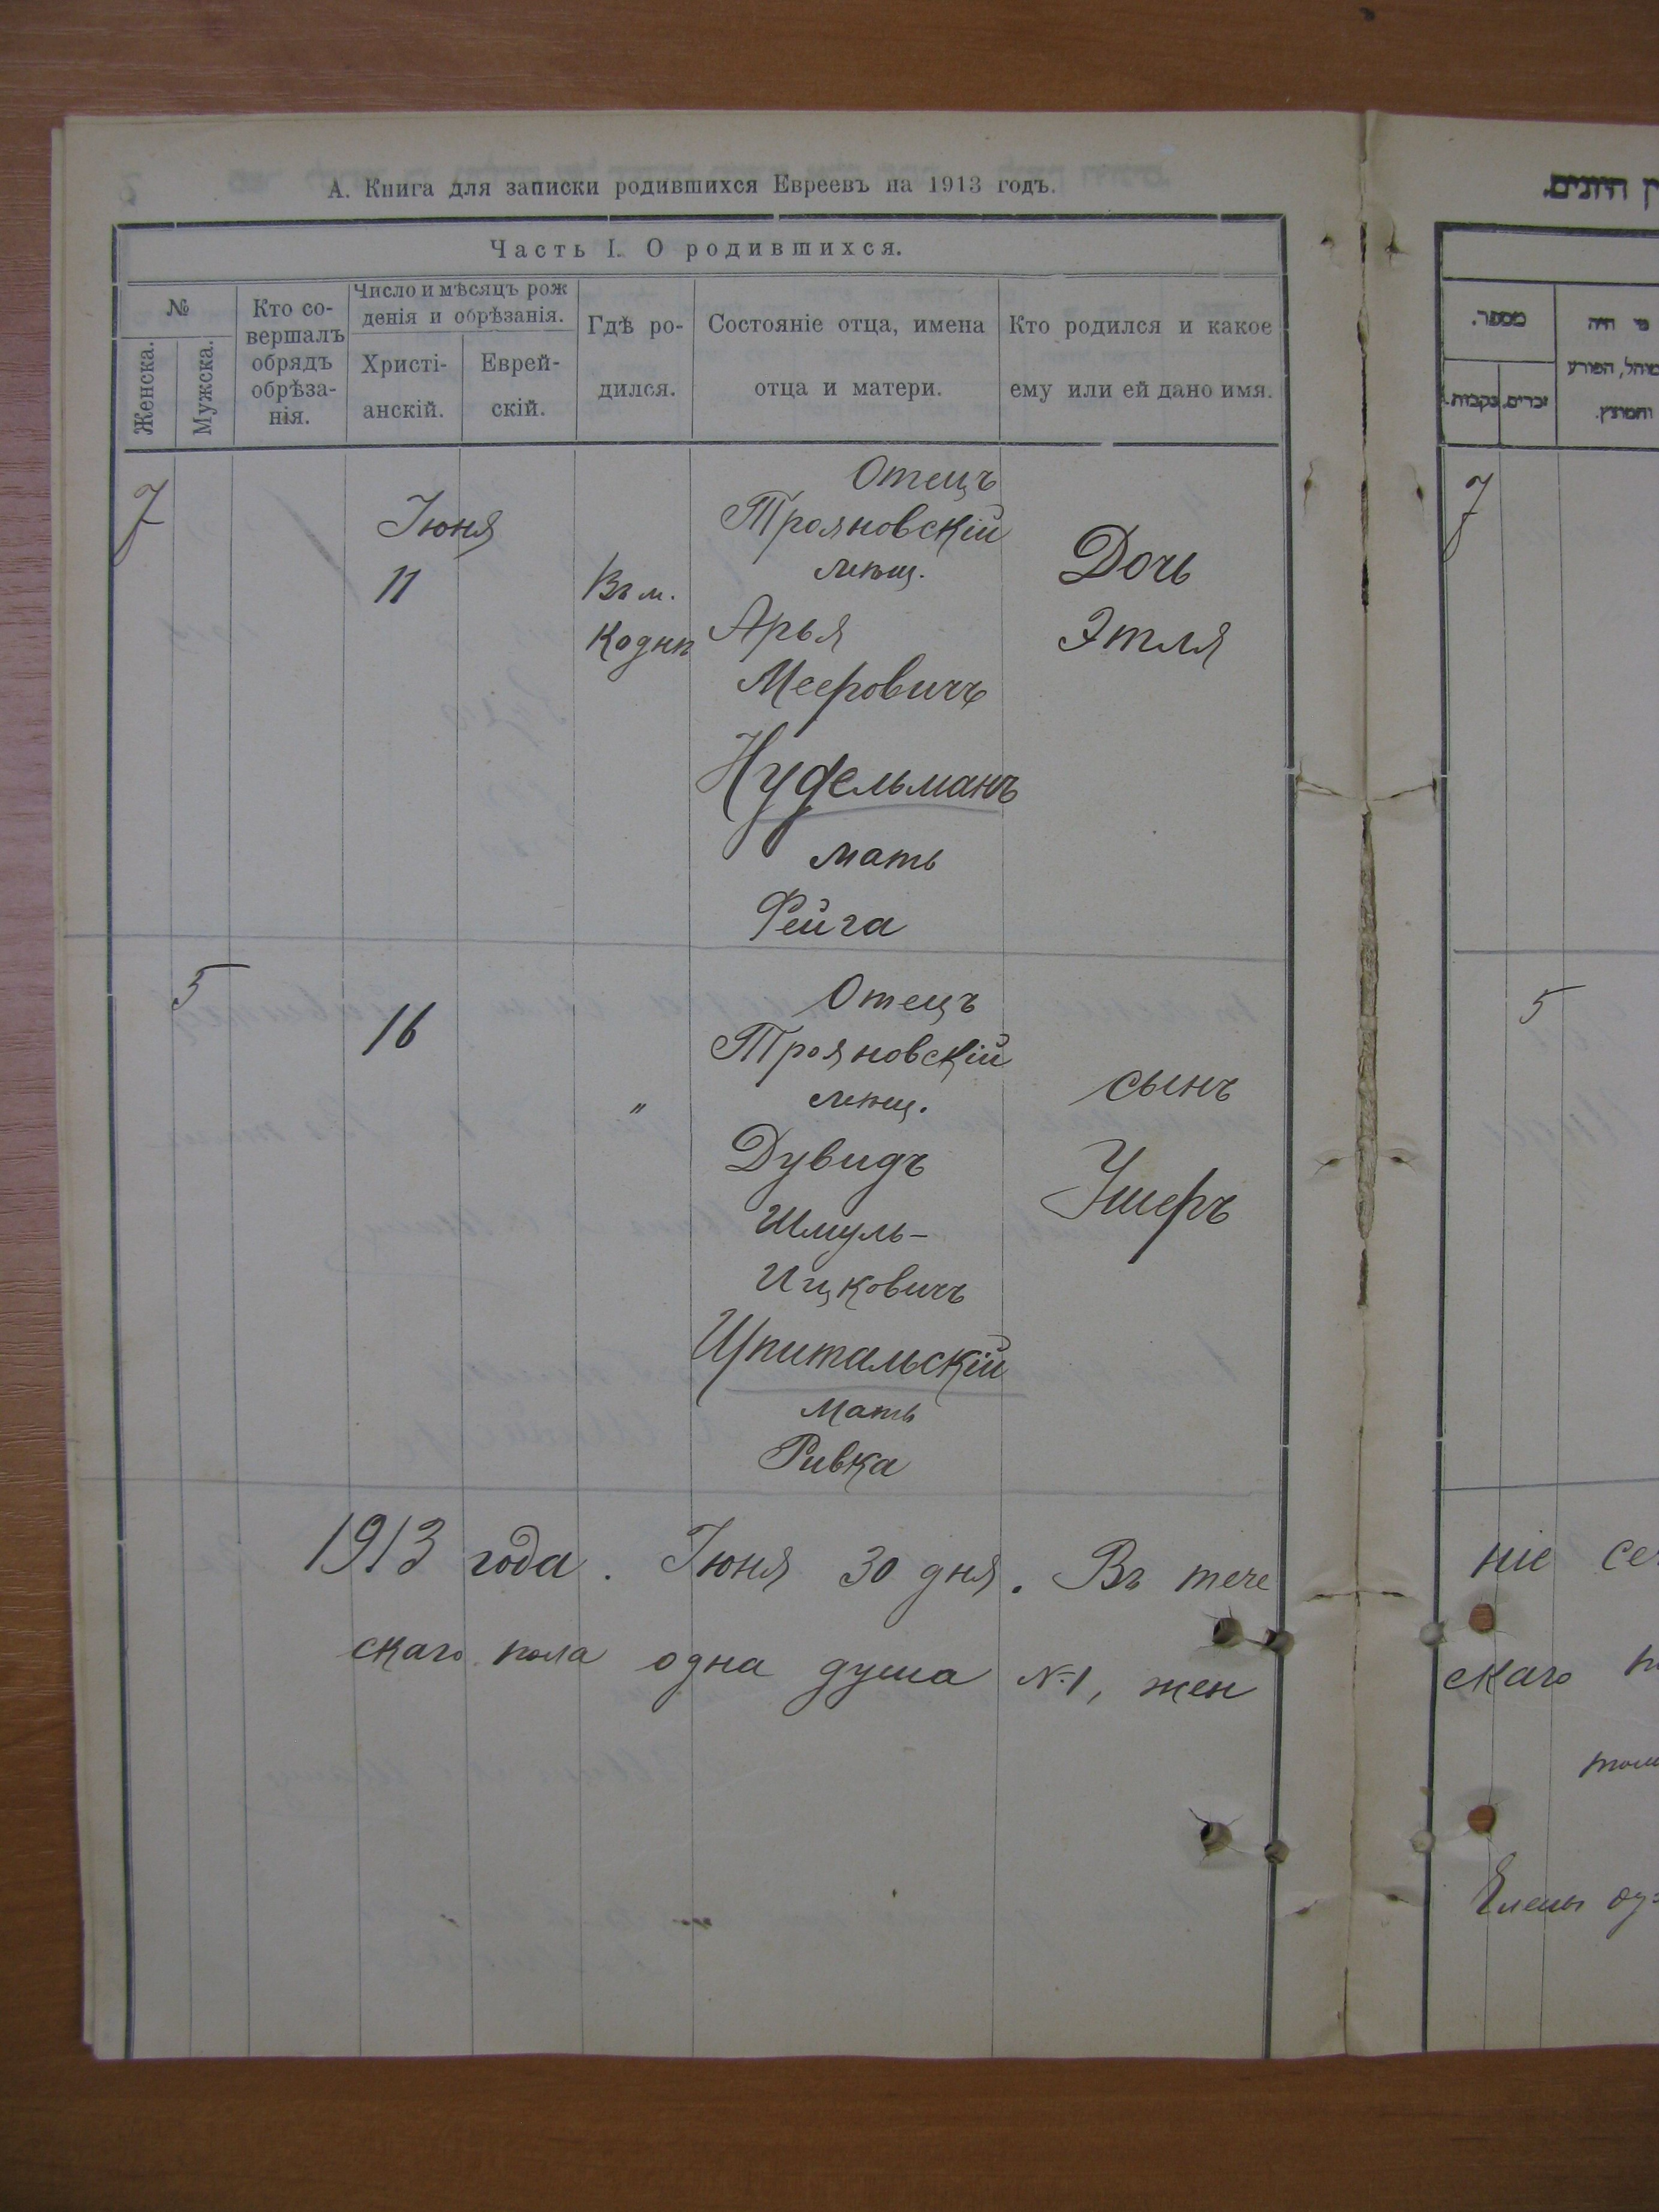 А. Книга для записки родившихся Евреевъ на 1913 годъ.
Часть I. О родившихся.
№
Женска.
Мужска.
Кто со-
вершалъ
обрядъ
обрѣза-
нія.
Число и мѣсяцъ рож
денія и обрѣзанія.
Христі-
анскій.
Еврей-
скій.
Гдѣ ро-
дился.
Состояніе отца, имена
отца и матери.
Кто родился и какое
ему или ей дано имя.
7
Іюня
11
Въ м.
Коднѣ
Отецъ
Трояновскій
мѣщ.
Арья
Мееровичъ
Нудельманъ
мать
Фейга
Дочь
Этля
5
16
"
Отецъ
Трояновскій
мѣщ.
Дувидъ
Шмуль-
Ицковичъ
Шпитальскій
Мать
Ривка
сынъ
Ушеръ
1913 года. Іюня 30 дня. Въ тече
скаго пола одна душа №1, жен
מספר.
זכרים.
נקבות.
מי היה
מוהל, הפורע
והמוצץ.
7
5
ніе
скаго